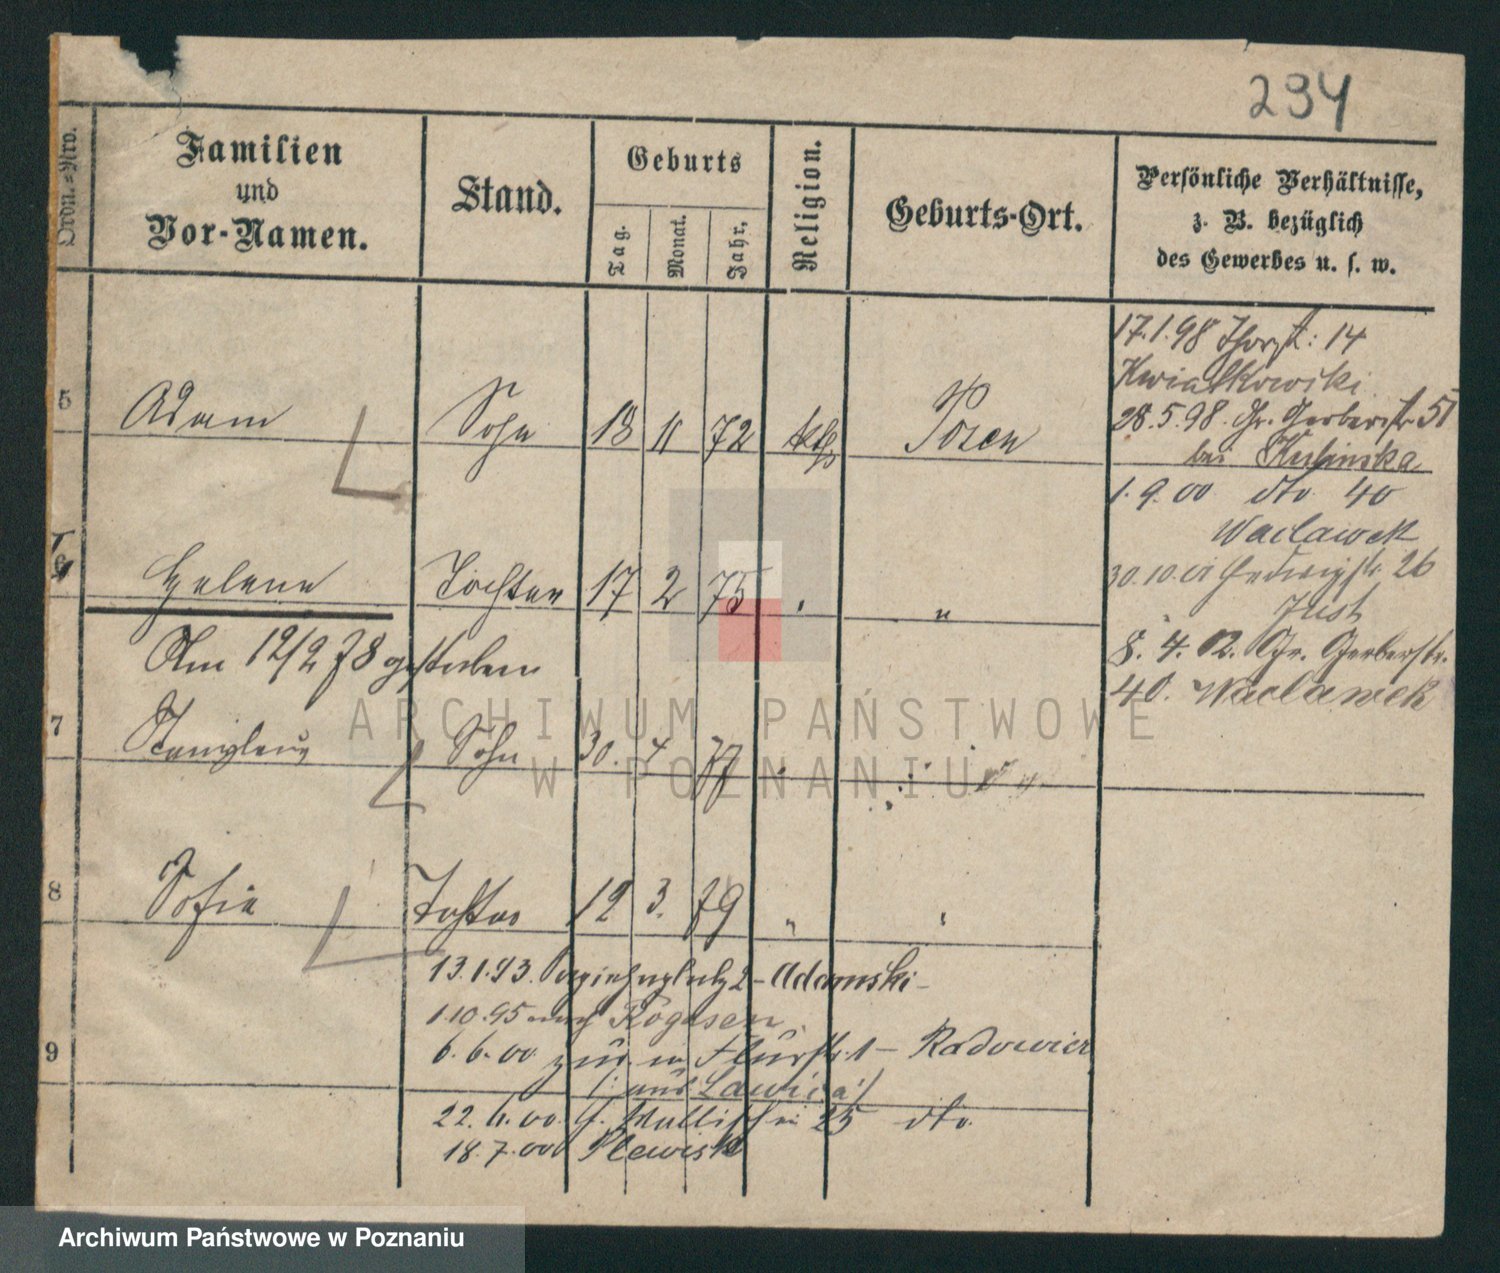 294
Ordn.-Nro.
Familien
und
Vor-Namen.
Stand.
Geburts
Tag.
Monat.
Jahr.
Religion.
Geburts-Ort.
Persönliche Verhältnisse,
z. B. bezüglich
des Gewerbes u. s. w.
17.1.98 14
Kwiatkowski
5 Adam Sohn 18 11 72 kth Posen
28.5.98. Gr. Gerberstr. 51
bei Kulinska
1.9.00 dto 40
Waclawek
6 Helene Tochter 17 2 75 " "
30.10.01 Hedwigstr. 26
Just
Am 12/2 78 gestorben
8. 4. 02. Gr. Gerberstr.
40. Waclawek
7 Stanislaus Sohn 30. 4 77 " "
8 Sofie Tochter 12 3. 79 " "
13.1.93. 2 - Adamski -
1.10.95 nach Rogasen
9
6.6.00 zur. in Flurstr. 1 - Radowicz
(: aus Lawica :)
22.6.00 25 dto
18.7.00 Plewisk
ARCHIWUM PAŃSTWOWE
W POZNANIU
Archiwum Państwowe w Poznaniu